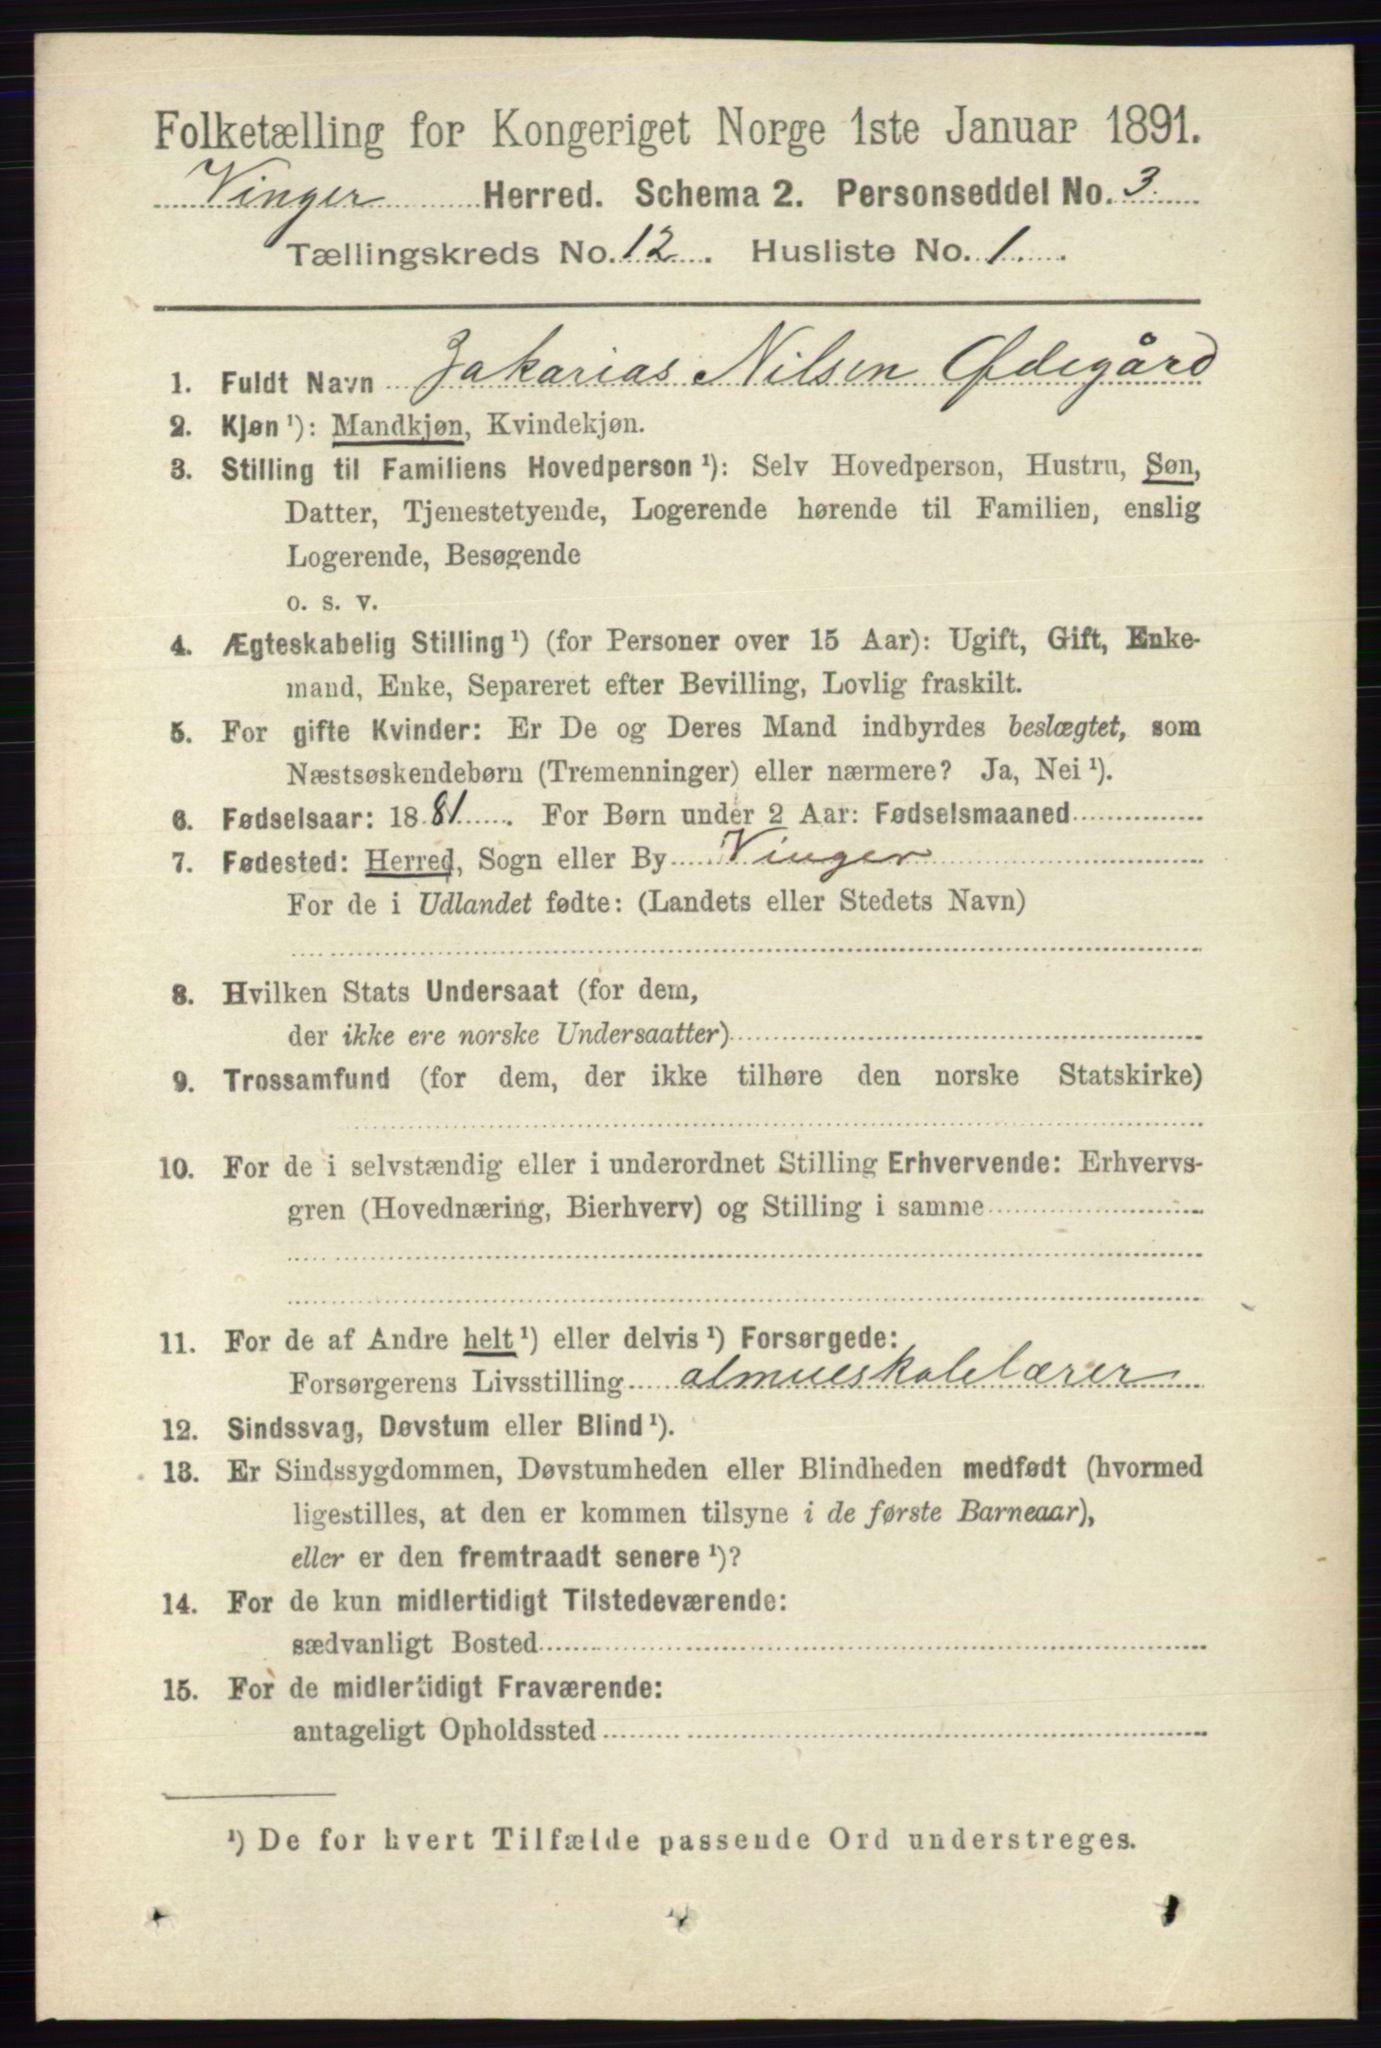 Folketælling for Kongeriget Norge 1ste Januar 1891.
Vinger Herred. Schema 2. Personseddel No. 3
Tællingskreds No. 12. Husliste No. 1
1. Fuldt Navn Zakarias Nilsen Ødegård
2. Kjøn ¹): Mandkjøn, Kvindekjøn.
3. Stilling til Familiens Hovedperson ¹): Selv Hovedperson, Hustru, Søn,
Datter, Tjenestetyende, Logerende hørende til Familien, enslig
Logerende, Besøgende
o. s. v.
4. Ægteskabelig Stilling ¹) (for Personer over 15 Aar): Ugift, Gift, Enke-
mand, Enke, Separeret efter Bevilling, Lovlig fraskilt.
5. For gifte Kvinder: Er De og Deres Mand indbyrdes beslægtet, som
Næstsøskendebørn (Tremenninger) eller nærmere? Ja, Nei ¹).
6. Fødselsaar: 1881. For Børn under 2 Aar: Fødselsmaaned
7. Fødested: Herred, Sogn eller By Vinger
For de i Udlandet fødte: (Landets eller Stedets Navn)
8. Hvilken Stats Undersaat (for dem,
der ikke ere norske Undersaatter)
9. Trossamfund (for dem, der ikke tilhøre den norske Statskirke)
10. For de i selvstændig eller i underordnet Stilling Erhvervende: Erhvervs-
gren (Hovednæring, Bierhverv) og Stilling i samme
11. For de af Andre helt ¹) eller delvis ¹) Forsørgede:
Forsørgerens Livsstilling almueskolelærer
12. Sindssvag, Døvstum eller Blind ¹).
13. Er Sindssygdommen, Døvstumheden eller Blindheden medfødt (hvormed
ligestilles, at den er kommen tilsyne i de første Barneaar),
eller er den fremtraadt senere ¹)?
14. For de kun midlertidigt Tilstedeværende:
sædvanligt Bosted
15. For de midlertidigt Fraværende:
antageligt Opholdssted
¹) De for hvert Tilfælde passende Ord understreges.